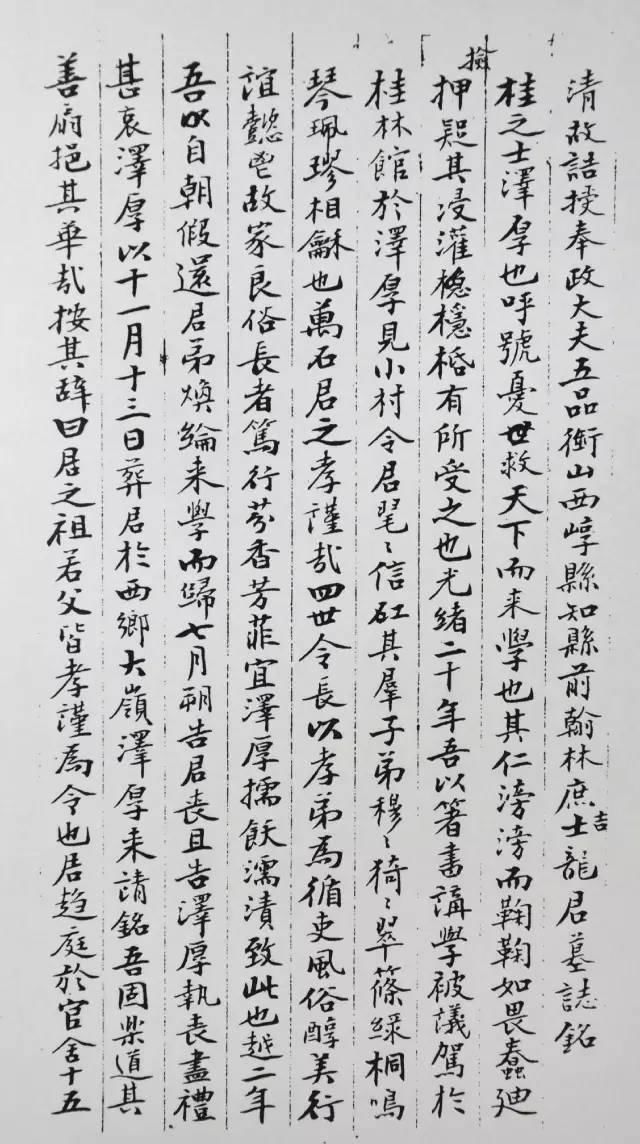 清故誥授奉政大夫五品銜山西崞縣知縣前翰林庶吉士龍君墓誌銘
桂之士澤厚也呼號憂世救天下而来學也其仁滂滂而鞠鞠如畏蠢迪
檢押疑其浸灌檼栝有所受之也光緒二十年吾以箸書講學被議駕於
桂林館於澤厚見小村令君毣〻信矼其羣子弟穆〻猗〻翠篠綠桐鳴
琴珮璆相龢也萬石君之孝謹哉四世令長以孝弟為循吏風俗醇美行
誼懿鬯故家良俗長者篤行芬香芳菲宜澤厚擩飫濡漬致此也越二年
吾以自朝假還君弟煥綸来學而歸七月朔告君喪且告澤厚執喪盡禮
甚哀澤厚以十一月十三日葬君於西鄉大嶺澤厚来請銘吾固樂道其
善扇挹其華哉按其辭曰君之祖若父皆孝謹爲令也君趋庭於官舍十五